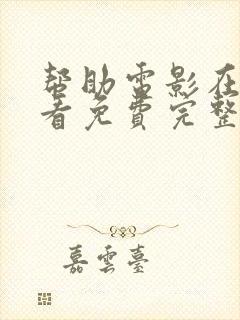 帮助雷影在
看免费完整
嘉雲臺